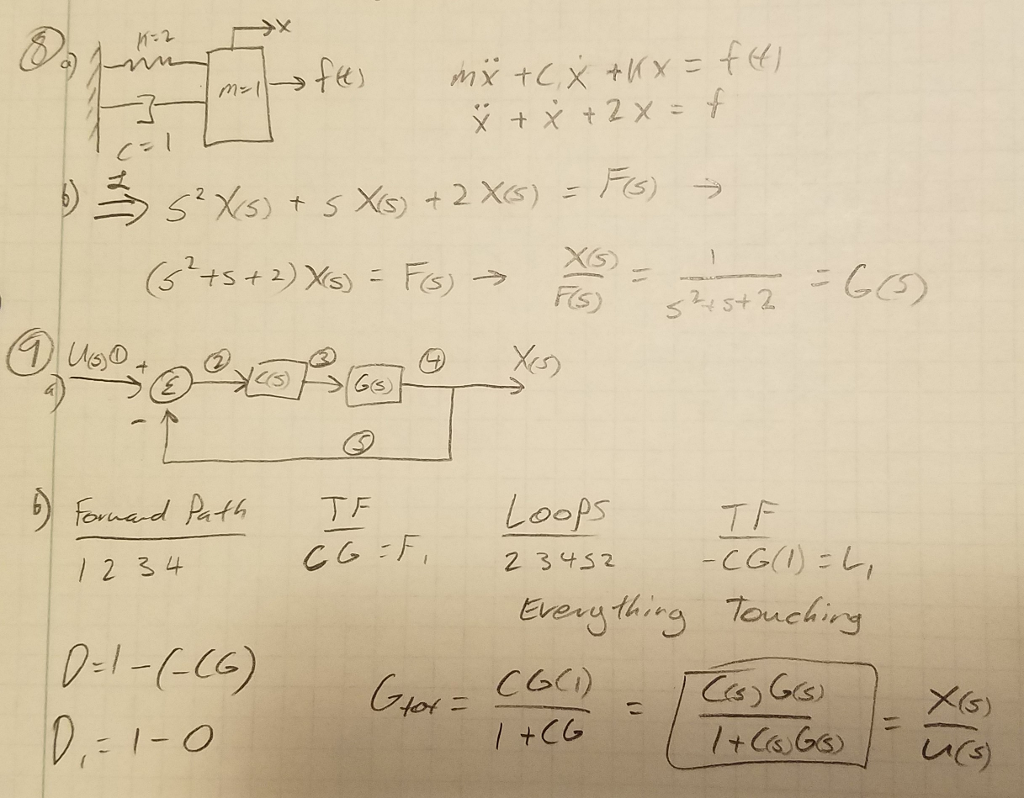 ⑧ a) K=2 → x
m=1 → f(t)
C=1
mẍ + Cẋ + Kx = f(t)
ẍ + ẋ + 2x = f
b) ℒ⇒ s²X(s) + sX(s) + 2X(s) = F(s) →
(s²+s+2)X(s) = F(s) → X(s)/F(s) = 1/(s²+s+2) = G(s)
⑨ a) U(s) ① + Σ ② C(s) ③ G(s) ④ X(s)
- ⑤
b) Forward Path TF Loops TF
1 2 3 4 CG = F₁ 2 3 4 5 2 -CG(1) = L₁
Everything Touching
D=1-(-CG)
D₁=1-0
G_tot = CG(1)/(1+CG) = C(s)G(s)/(1+C(s)G(s)) = X(s)/U(s)